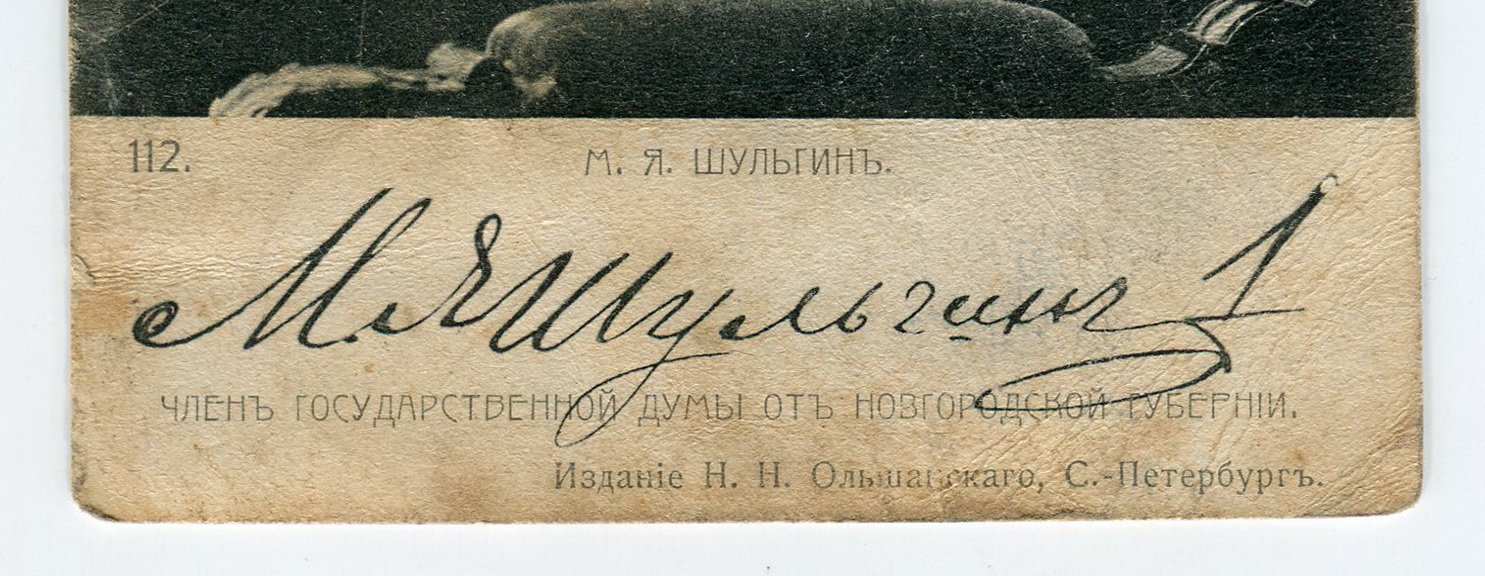 112.
М. Я. ШУЛЬГИНЪ.
М. Я Шульгинъ 1
ЧЛЕНЪ ГОСУДАРСТВЕННОЙ ДУМЫ ОТЪ НОВГОРОДСКОЙ ГУБЕРНІИ.
Изданіе Н. Н. Ольшанскаго, С.-Петербургъ.